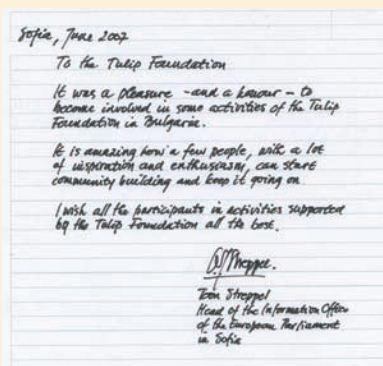 Sofia, June 2007
To the Tulip Foundation
It was a pleasure - and a honour - to
become involved in some activities of the Tulip
Foundation in Bulgaria.
It is amazing how a few people, with a lot
of inspiration and enthusiasm, can start
community building and keep it going on.
I wish all the participants in activities supported
by the Tulip Foundation all the best.
Streppel.
Toon Streppel
Head of the Information Office
of the European Parliament
in Sofia